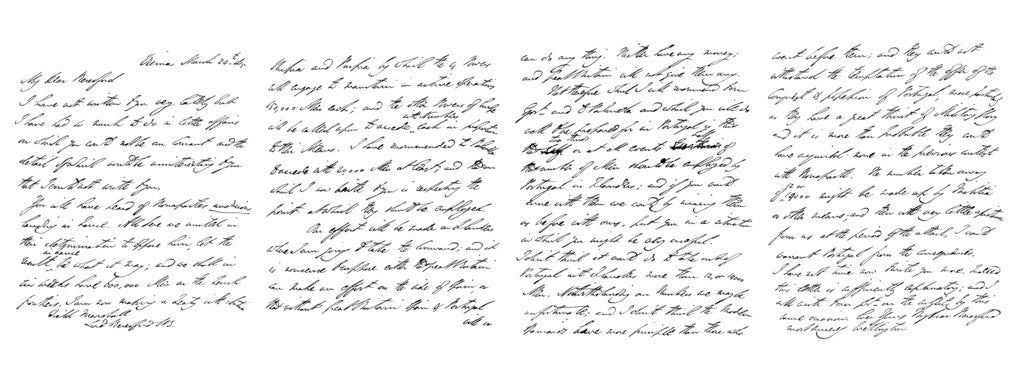 Vienna March 24th 1815
My Dear Beresford
I have not written to you very lately but
I have had so much to do in little affairs
on which you could not be an and the
detail of which would be uninteresting to you
that I could not write to you.
You will have heard of Bonaparte's
landing in France. All here are united in
their determination to oppose him, let the
result in France be what it may; and we shall in
have 600,000 Men on the French
frontiers. I am now making a Treaty with
Field Marshall
Lord Beresford KB.
Russia and Prussia by which the 4 Powers
will engage to maintain in active Operation
150,000 Men each; and the other Powers of Europe
will be called upon to accede with numbers each in proportion
to their Means. I have recommended to
to accede with Men at least; and
shall I am write to you respecting the
point at which they should be employed.
An effort will be made in Flanders
where I am going to take the Command; and it
is nonsense to suppose either that Great Britain
can make an effort on the side of Spain or
this without Great Britain Spain & Portugal
will or
can do any thing. Neither have any money;
and Great Britain will not give them any.
Not therefore shall I will recommend to our
Govt. and to Palmella and which you will do
well to be prepared for in Portugal is, that
the or two thirds or at all events of
that number of Men should be employed by
Portugal in Flanders; and if you could
come with them we could by mixing them
as before with ours, put you in a situation
in which you might be very useful.
I don't think it could do to the
Portugal out of Flanders more than 12 or 14000
Men. Notwithstanding our Numbers we may be
unfortunate; and I don't think the Modern
Romans have more principle than those who
went before them; and they could not
withstand the temptation of the of the
Conquest & possession of Portugal, more particularly
as they have a great thirst of Military Glory
and it is more than probable they would
have acquired none in the previous contest
with Bonaparte. The number taken away
of 12 or 14000 might be made up by Militia
or other means; and then with very little assistance
from us at the period of the attack, I would
warrant Portugal from the consequences.
I have not time now to write to you more. Indeed
this letter is sufficiently explanatory; and I
will write to on the subject by the
same occasion. Ever Yours My Dear Beresford
most sincerely Wellington